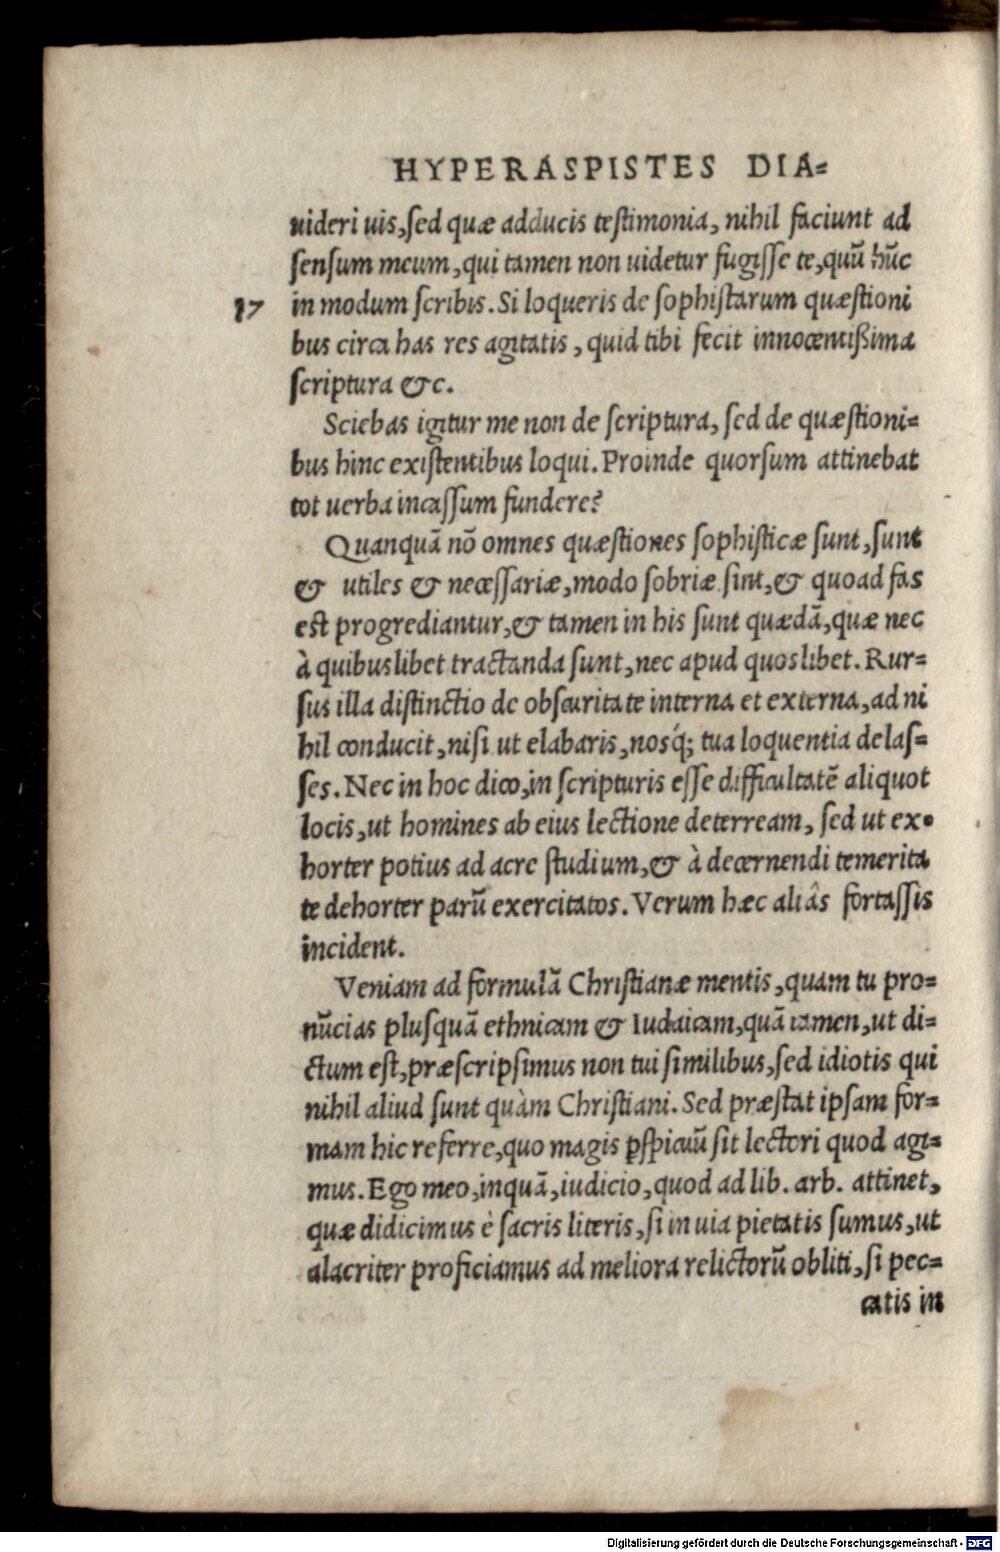 HYPERASPISTES DIA=
uideri uis, sed quæ adducis testimonia, nihil faciunt ad
sensum meum, qui tamen non uidetur fugisse te, quũ hũc
37 in modum scribis. Si loqueris de sophistarum quæstioni
bus circa has res agitatis, quid tibi fecit innocentißima
scriptura &c.
Sciebas igitur me non de scriptura, sed de quæstioni=
bus hinc existentibus loqui. Proinde quorsum attinebat
tot uerba incassum fundere?
Quanquã nõ omnes quæstiones sophisticæ sunt, sunt
& utiles & necessariæ, modo sobriæ sint, & quoad fas
est progrediantur, & tamen in his sunt quædã, quæ nec
à quibuslibet tractanda sunt, nec apud quoslibet. Rur=
sus illa distinctio de obscuritate interna et externa, ad ni
hil conducit, nisi ut elabaris, nosq́; tua loquentia delas=
ses. Nec in hoc dico, in scripturis esse difficultatẽ aliquot
locis, ut homines ab eius lectione deterream, sed ut ex•
horter potius ad acre studium, & à decernendi temerita
te dehorter parũ exercitatos. Verum hæc aliâs fortassis
incident.
Veniam ad formulã Christianæ mentis, quam tu pro=
nũcias plusquã ethnicam & Iudaicam, quã tamen, ut di=
ctum est, præscripsimus non tui similibus, sed idiotis qui
nihil aliud sunt quàm Christiani. Sed præstat ipsam for=
mam hic referre, quo magis ꝑspicuũ sit lectori quod agi=
mus. Ego meo, inquã, iudicio, quod ad lib. arb. attinet,
quæ didicimus è sacris literis, si in uia pietatis sumus, ut
alacriter proficiamus ad meliora relictorũ obliti, si pec=
catis in
Digitalisierung gefördert durch die Deutsche Forschungsgemeinschaft - DFG